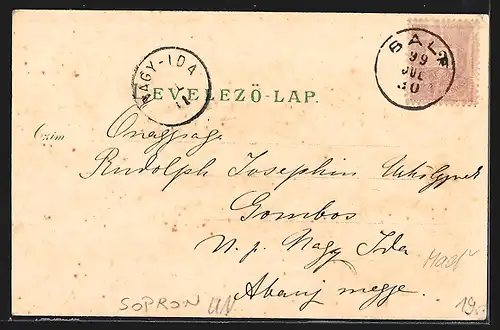 BALF
99
JUL
30
NAGY-IDA
LEVELEZŐ-LAP.
Czim
Onagysaga
Rudolph Josephin
Gombos
N. p. Nagy Ida
Abauj megye.
SOPRON UN
19.-